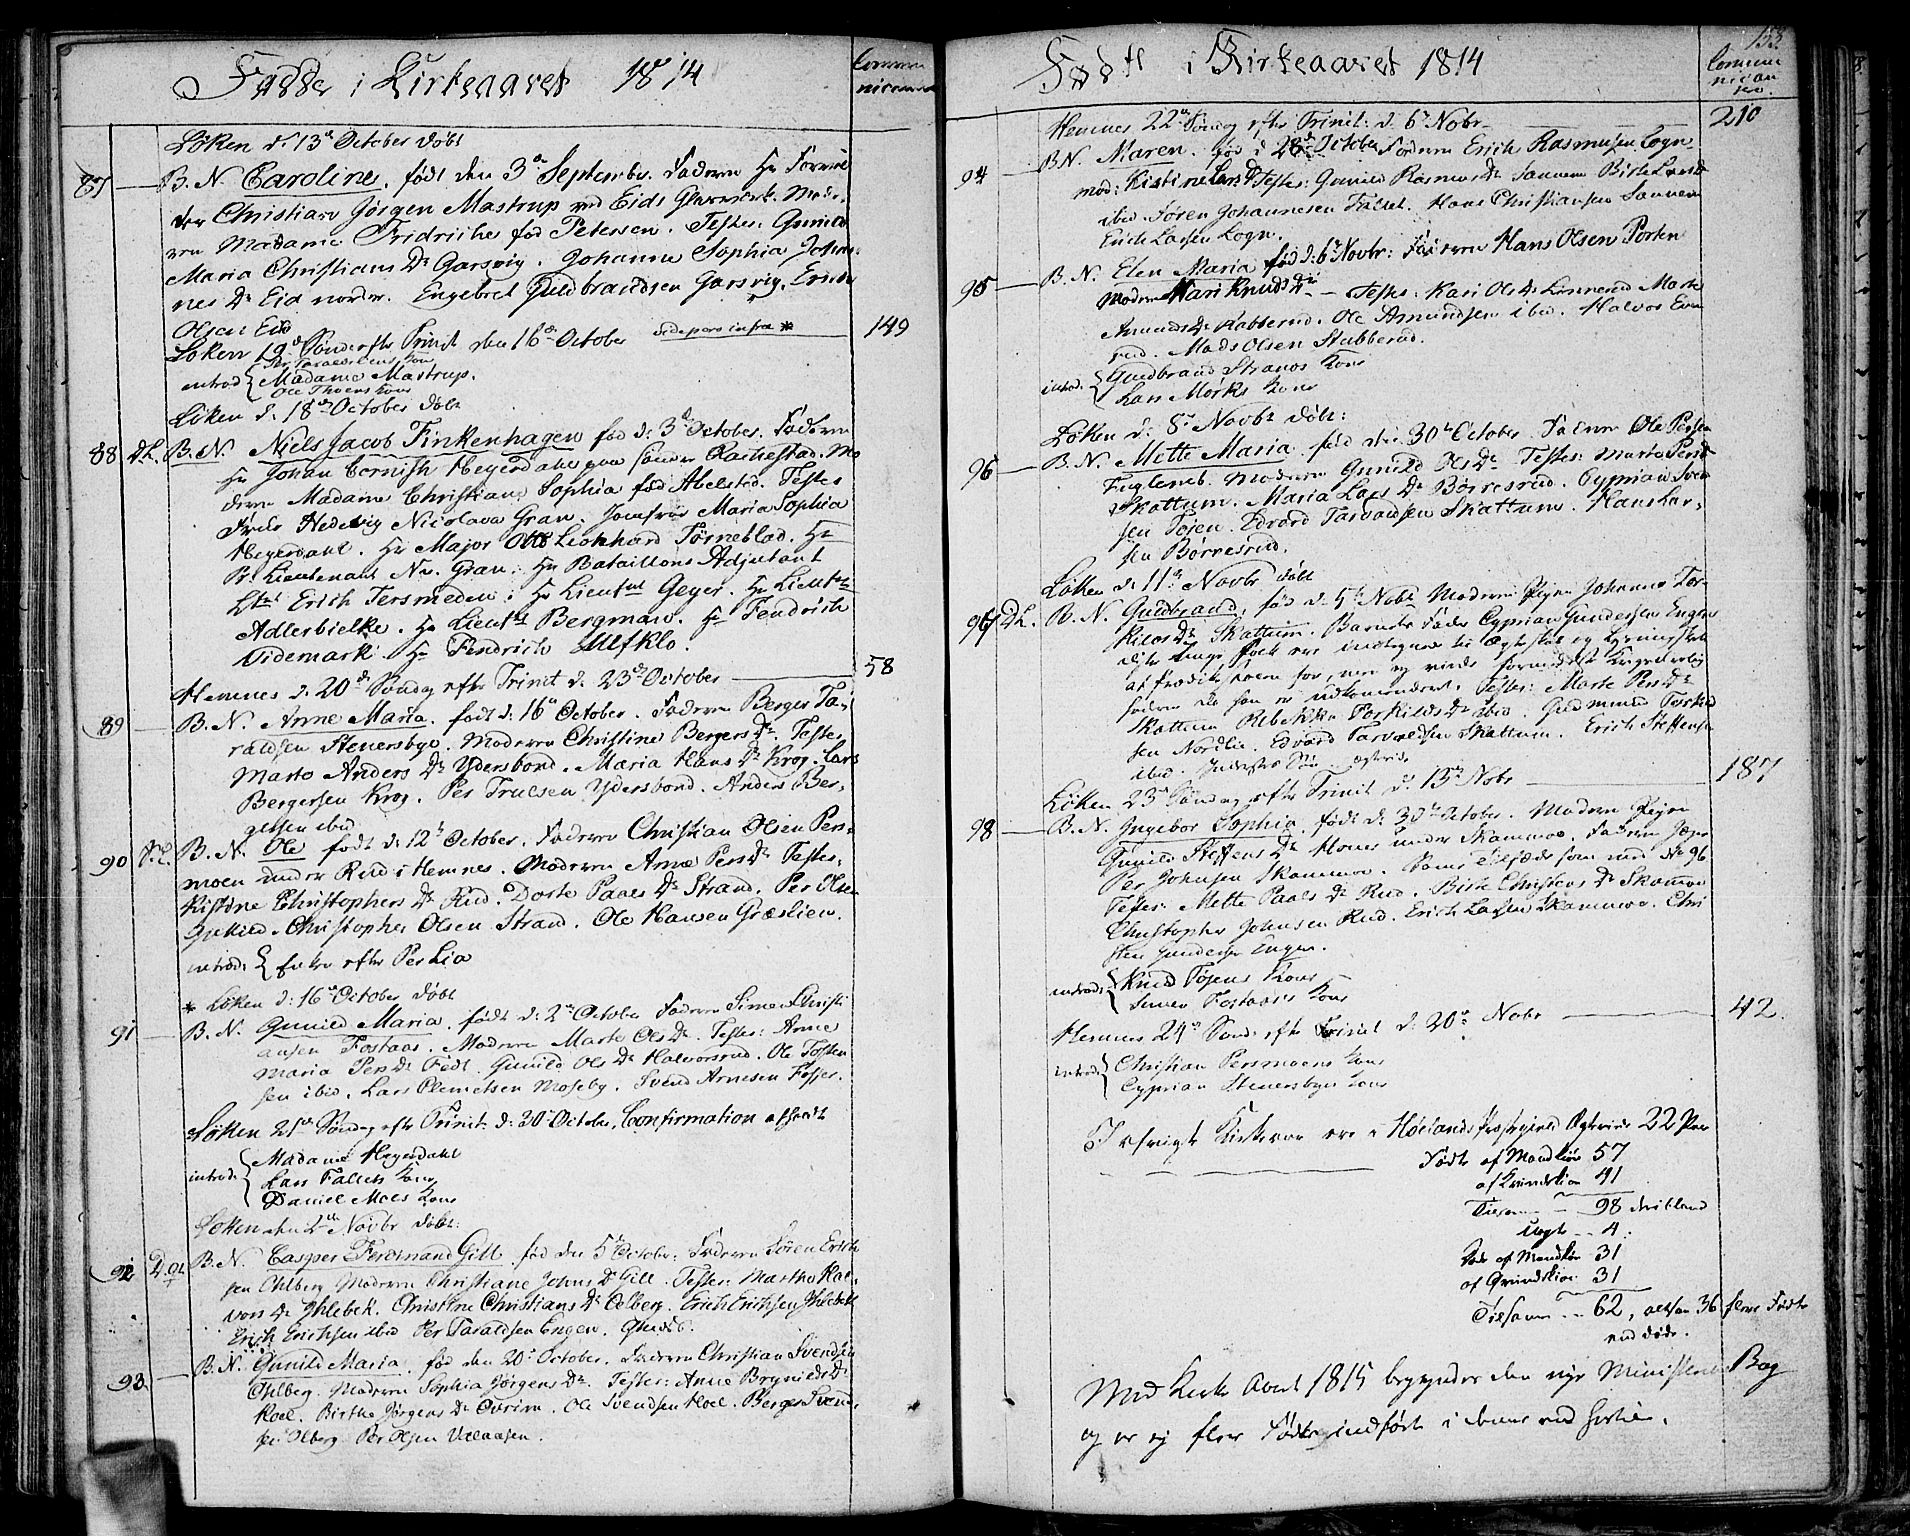 Fødde i Kirkeaaret 1814
Commu
nicantere
Løken d. 13de October døbt
87 B. N. Caroline. født den 3de Septembr. Faderen Hr Forval
ter Christian Jørgen Mastrup ved Eids Glasværk. Mode-
ren Madame Fridriche fød Petersen. Testes: Gunild
Maria Christians Dr Garsvig. Johanne Sophia Johan-
nes Dr Eid nordre. Engebret Guldbrandsen Garsvig. Erich
Olsen Eid
Løken 19de Sønd. efter Trinit. den 16de October vide pero infra * 149
introd. Per Taraldsens Kone
Madame Mastrup.
Ole Thoens Kone
Løken d. 18de October døbt
88 D.L. B. N. Niels Jacob Finkenhagen fød d. 3de October. Faderen
Hr Johan Cornish Heyerdahl paa søndre Rakkestad. Mo
deren Madame Christiane Sophia fød Abelsted. Testes
Frue Hedevig Nicolava Gran. Jomfrue Maria Sophia
Heyerdahl. Hr Major Otto Leonhard Törneblad. Hr
Pr. Lieutenant N. Gran. Hr Bataillons Adjutant
Ltnt Erich Tersmeden. Hr Lieutnt Geyer. Hr Lieutnt
Adlerbielke. Hr Lieutnt Bergman. Hr Fendrich
Tidemark. Hr Fendrich Ulfklo.
Hemnes d. 20de Søndag efter Trinit. d. 23de October 58
89 B. N. Anne Maria. født d. 16de October. Faderen Berger Ta-
raldsen Stenersbye. Moderen Christine Bergers Dr. Testes
Marte Anders Dr Ydersbond. Maria Hans Dr Krog. Lars
Bergersen Krog. Per Truelsen Ydersbond. Anders Ber-
gersen ibid
90 D.L. B. N. Ole født d. 12te October. Faderen Christian Olsen Pers-
moen under Rud i Hemnes. Moderen Anne Pers Dr Testes.
Kistine Christophers Dr Rud. Dorte Paals Dr Strand. Per Olsen
Christopher Olsen Strand. Ole Hansen Græslien.
introd: Enken efter Per Lia
* Løken d: 16de October døbt
91 B. N. Gunild Maria. født d: 2de October Faderen Simen Christi
ansen Fostaas. Moderen Marte Ols Dr. Testes: Anne
Maria Pers Dr Fedt. Gunild Ols Dr Halvorsrud. Ole Tosten
sen ibid. Lars Clemetsen Moseby. Svend Arnesen Fosser.
Løken 21de Søndag efter Trinit. d: 30 October, Confirmation afholdt
introd: Madame Heyerdahl
Lars Fallets Kone
Daniel Moes Kone
Løken den 2de Novbr døbt:
92 B. N. Casper Ferdinand Gill. fød den 5te October. Faderen Søren Erich
sen Ohlberg Moderen Christiane Johns Dr Gill. Testes: Marthe Hal-
vors Dr Ihlebek. Christine Christians Dr Oelberg. Erich Erichsen Ihlebek
Erich Erichsen ibid Per Taraldsen Engen.
93 B. N. Gunild Maria. fød den 20de October. Faderen Christian Svendsen
Ohlberg. Moderen Sophia Jørgens Dr. Testes: Anne Brynilds Dr
Hoel. Birthe Jørgens Dr Ovrim. Ole Svendsen Hoel. Berger Svend
sen Olberg Per Olsen
Født i Kirkeaaret 1814
153.
Commu
nican
tere.
Hemnes 22de Søndag efter Trinit: d. 6te Nobr 210
94 B. N. Maren. fød d. 28de October Faderen Erich Rasmusen Logn
mod: Kistine Lars Dr Testes: Gunild Rasmus Dr Sannem Birte Lars Dr
ibid. Søren Johannesen Fallet. Hans Christiansen Sannem
Erich Larsen Logn.
95 B. N. Elen Maria fød d: 6te Novbr: Faderen Hans Olsen Porten
Moderen Mari Knuds Dr - Testes: Kari Ols Dr Linnerud Marte
Amunds Dr Kabberud. Ole Amundsen ibid. Halvor Even
rud. Mads Olsen Stubberud.
introd. Guldbrand Strands Kone
Lars Mørks Kone
Løken d. 8de Novbr døbt:
96 B. N. Mette Maria. fød den 30te October. Faderen Ole Persen
Fuglemb. Moderen Gunild Ols Dr Testes: Marte Pers Dr
Skattum. Maria Lars Dr Børresrud. Cyprian Svend
sen Tosen. Edvard Tarvaldsen Skattum. Hans Lar-
sen Børresrud.
Løken d. 11te Novbr døbt
97 D.L. B. N. Guldbrand, fød d: 5te Nobr Moderen Pigen Johanne Tor-
kilds Dr Skattum. Barnets Fader Cyprian Gundersen Engen
disse unge Folk ere indtegnede til Ægteskab og
Faderen da han er udkommenderet. Testes: Marte Pers Dr
Skattum Rebekka Torkilds Dr ibid. Gudmund Torkild
sen Nordlie. Edvard Tarvaldsen Skattum. Erich Steffensen
ibid.
Løken 23de Søndag efter Trinit d. 13de Nobr 187
98 B. N. Ingebor Sophia. født d: 30te October. Moderen Pigen
Gunild Steffens Dr Honer under Skammoe. Faderen
Per Johnsen Skammoe. No 96
Testes: Mette Paals Dr Rud. Birte Christens Dr Skamoe
Christopher Johnsen Rud. Erich Larsen Skammoe. Chri
sten Gundersen Engen.
introd: Knud Tosens Kone
Simen Fostaas's Kone
Hemnes 24de Sønd. efter Trinit d. 20de Nobr 42.
introd: Christian Persmoens Kone
Cyprian Stenersbyes Kone
I afvigte Kirkeaar ere i Høelands Præstegield Ægteviede 22 Par
Fødte af Mandkiøn 57
af Kvindekiøn 41
Tilsam - - 98
Uægt - - 4.
Døde af Mandkiøn 31
af Qvindekiøn 31
Tilsam - - 62, altsaa 36 flere Fødte
end døde.
Med Kirke Aaret 1815 begynder den nye Ministerial Bog
og er ej flere Fødte indført i denne end hertil.